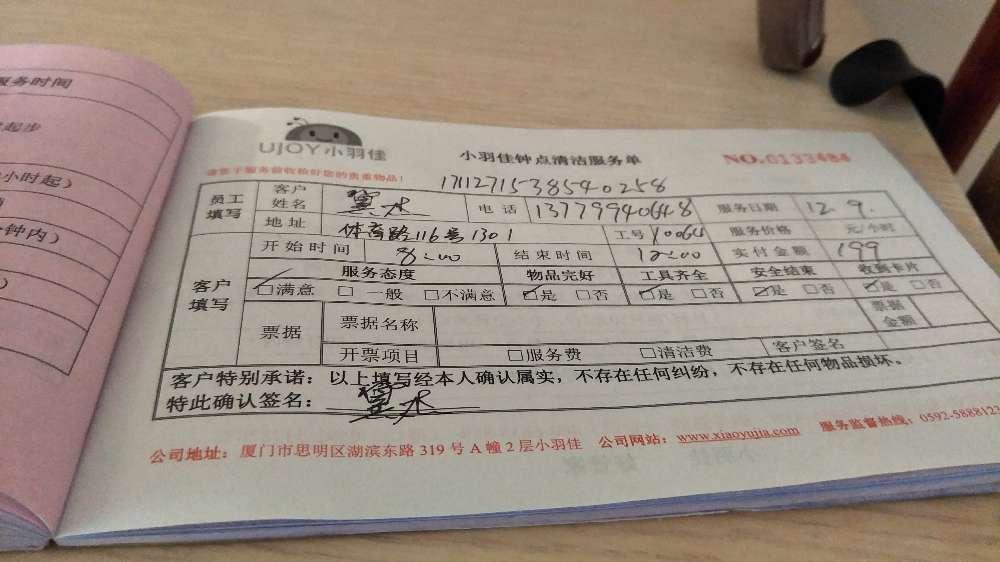 服务时间
起步
小时起）
钟内）
UJOY小羽佳
小羽佳钟点清洁服务单
NO.0133484
请您于服务前收检好您的贵重物品！
171127153854 0258
员工填写 客户姓名 冀水 电话 13779940648 服务日期 12.9.
地址 体育路116号1301 工号 10064 服务价格 元/小时
客户填写 开始时间 8:00 结束时间 12:00 实付金额 199
服务态度 物品完好 工具齐全 安全结束 收到卡片
☑满意 □一般 □不满意 ☑是 □否 ☑是 □否 ☑是 □否 ☑是 □否
票据 票据名称 票据金额
开票项目 □服务费 □清洁费 客户签名
客户特别承诺：以上填写经本人确认属实，不存在任何纠纷，不存在任何物品损坏。
特此确认签名：冀水
公司地址：厦门市思明区湖滨东路319号A幢2层小羽佳 公司网站：www.xiaoyujia.com 服务监督热线：0592-588812